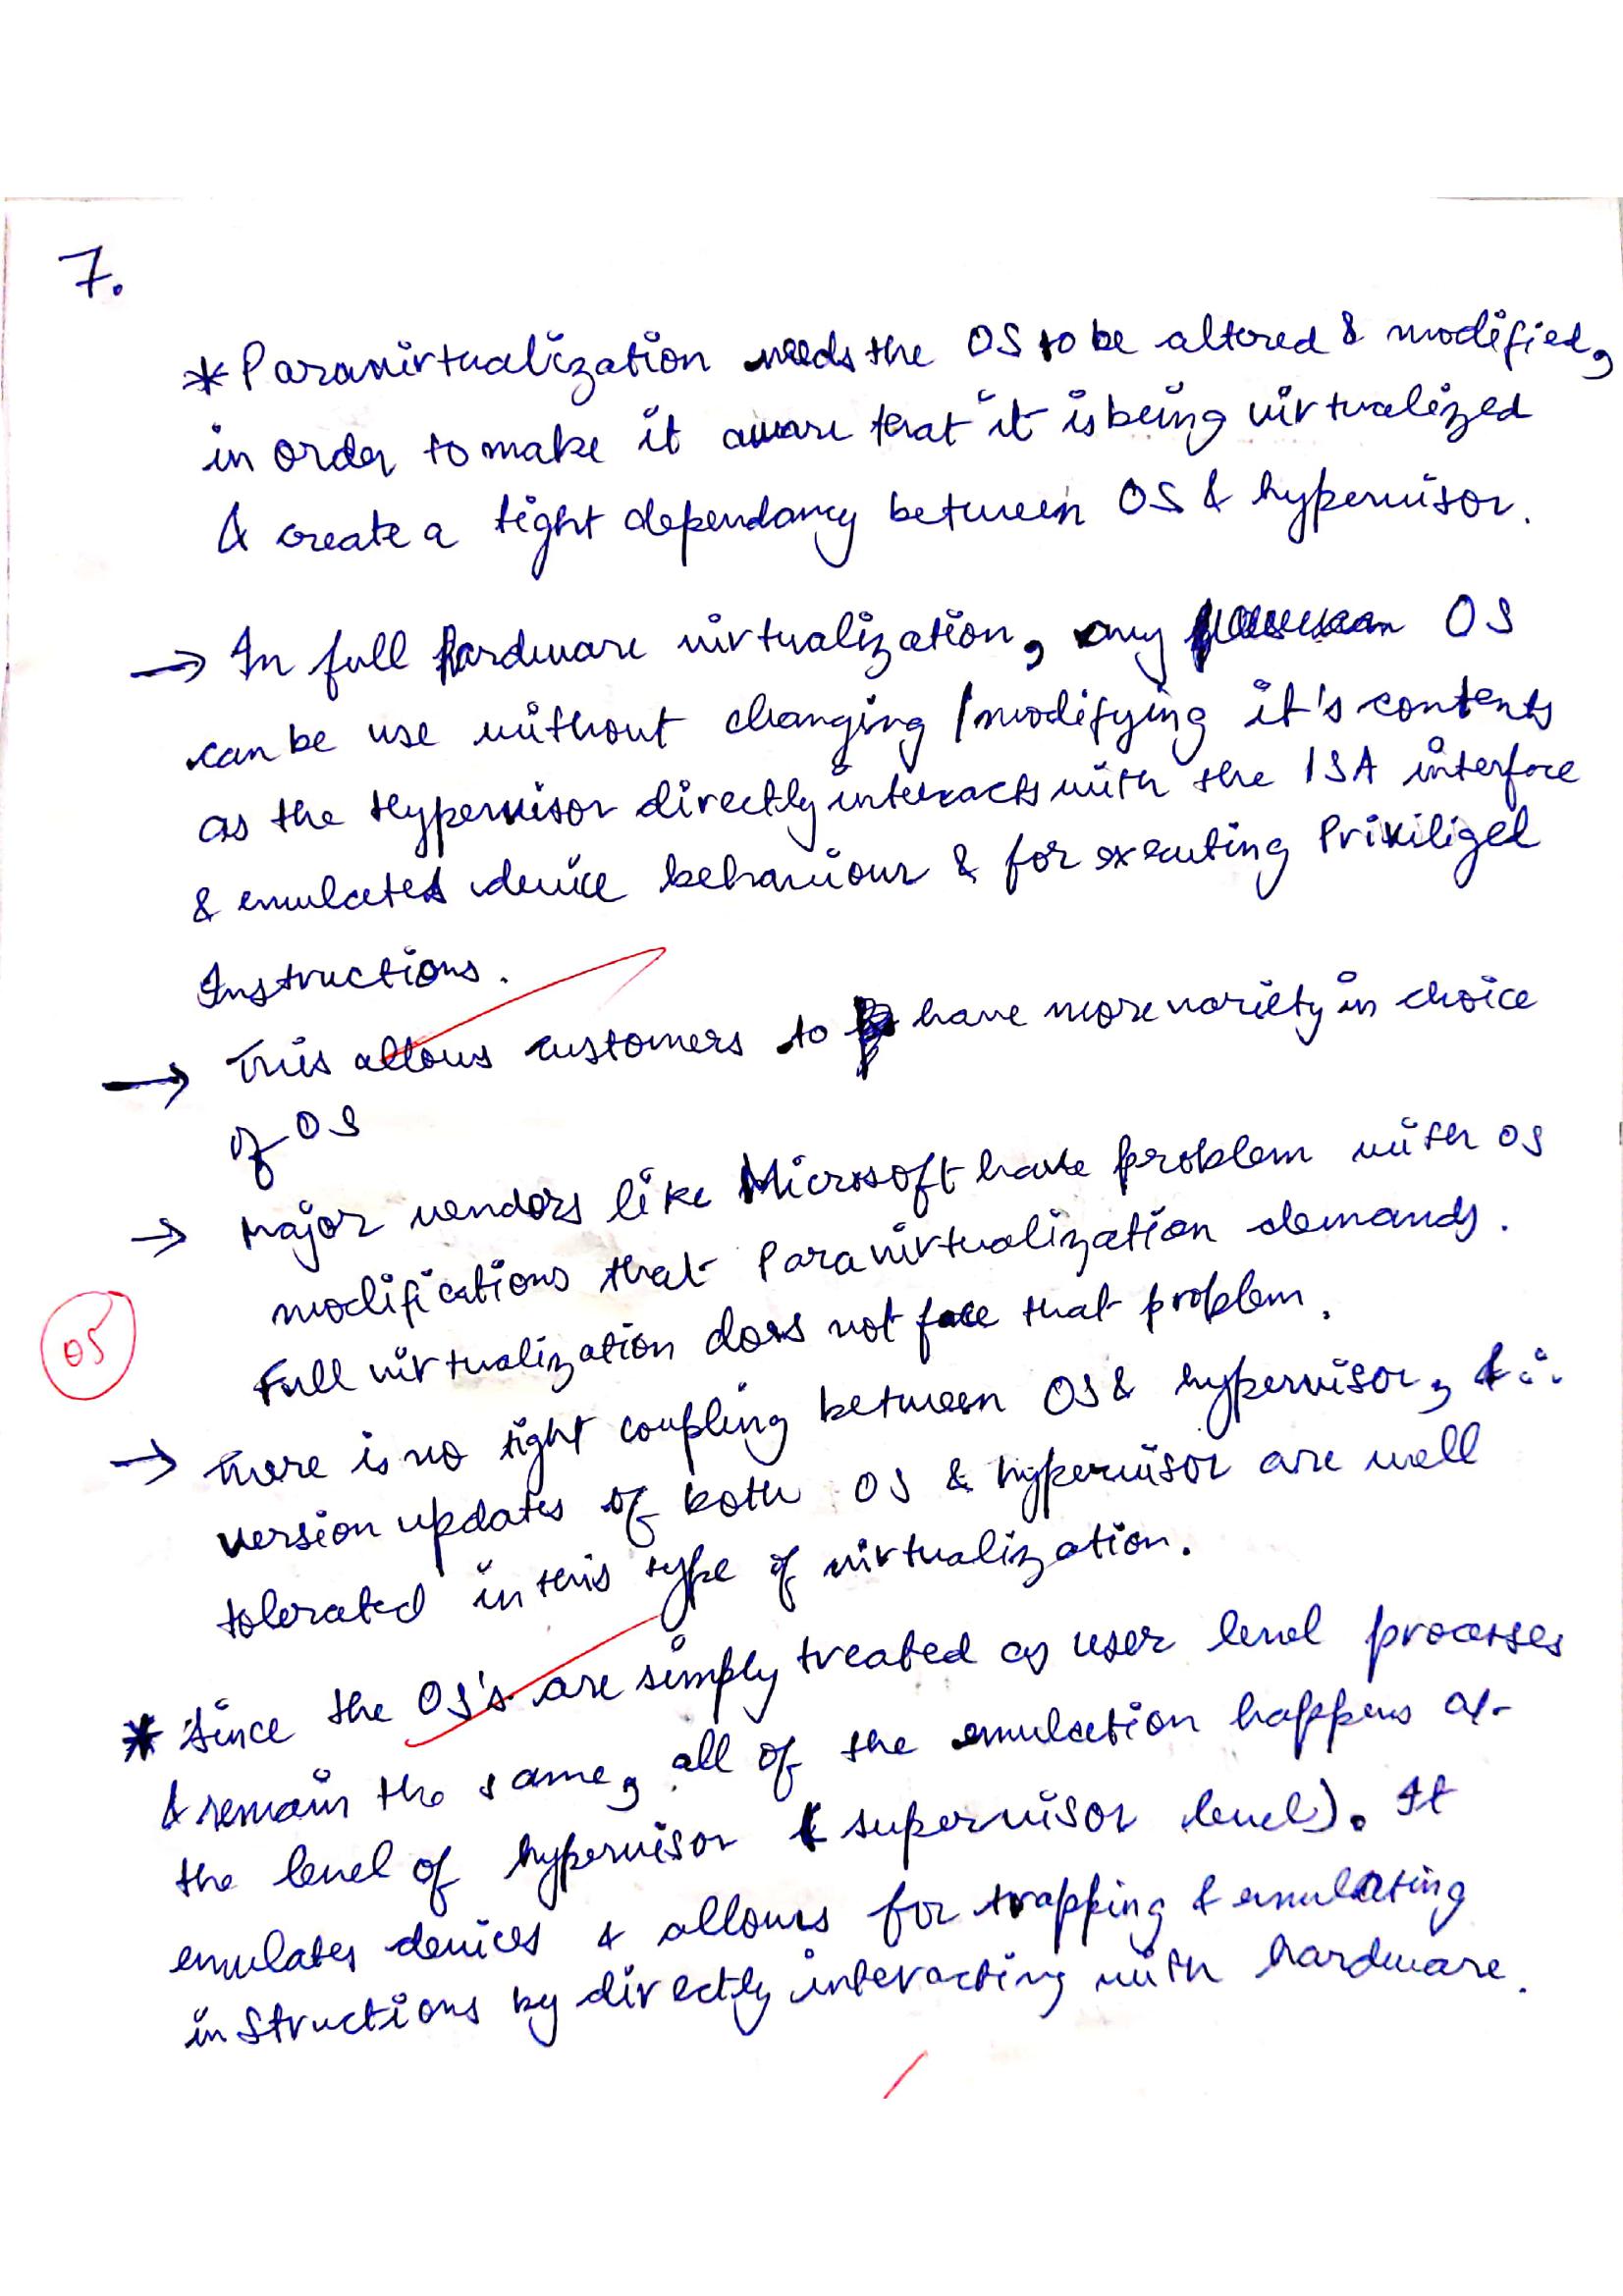 7.
* Paravirtualization needs the OS to be altered & modified,
in order to make it aware that it is being virtualized
& create a tight dependancy between OS & hypervisor.
→ In full hardware virtualization, any OS
can be use without changing / modifying it's contents
as the Hypervisor directly interacts with the ISA interface
& emulates device behaviour & for executing Priviliged
Instructions.
→ This allows customers to have more variety in choice
of OS
→ Major vendors like Microsoft have problem with OS
modifications that Paravirtualization demands.
Full virtualization does not face that problem.
05
→ There is no tight coupling between OS & hypervisor, & ∴
version updates of both OS & hypervisor are well
tolerated in this type of virtualization.
* Since the OS's are simply treated as user level processes
& remain the same, all of the emulation happens at
the level of hypervisor (supervisor level). It
emulates devices & allows for trapping & emulating
instructions by directly interacting with hardware.